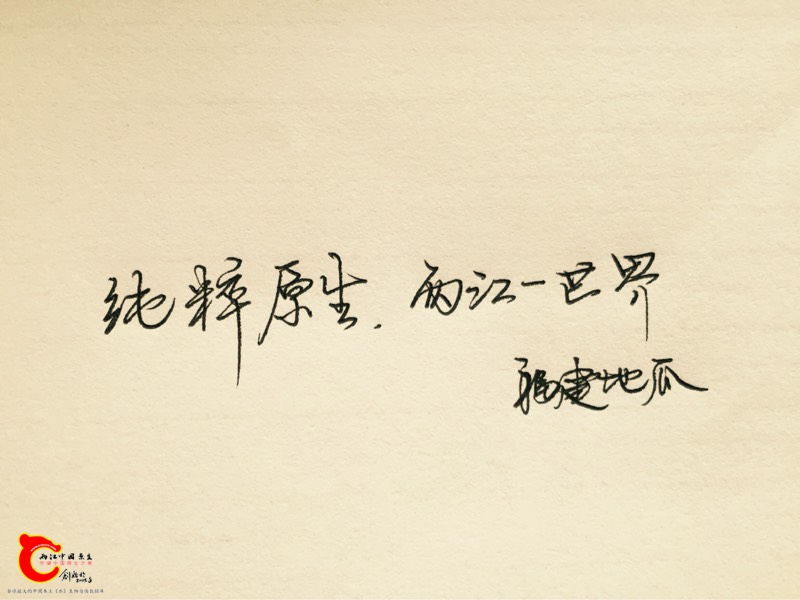 纯粹原生.两江一世界
福建地瓜
两江中国原生
创始于